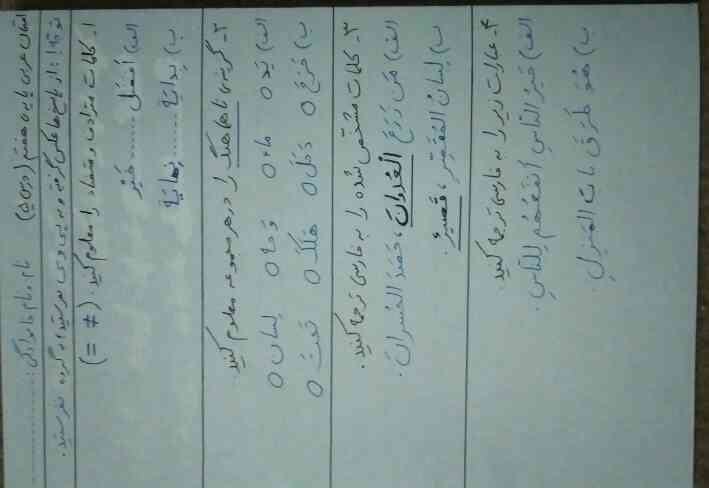 امتحان عربی پایه هفتم (درس ۵) نام و نام خانوادگی: ..............
توجه: از پاسخ ها عکس گرفته و به پی وی بفرستید، به گروه نفرستید.
۱- کلمات مترادف و متضاد را معلوم کنید. (≠ =)
الف) أفضَل ........ خَیر
ب) بِدایَة ........ نِهایَة
۲- گزینه‌ی ناهماهنگ را در هر مجموعه معلوم کنید.
الف) یَد ○ ماء ○ وَجه ○ لِسان ○
ب) خَرَجَ ○ دَخَلَ ○ هَلَکَ ○ تَحتَ ○
۳- کلمات مشخص شده را به فارسی ترجمه کنید.
الف) مَن زَرَعَ العُدوانَ، حَصَدَ الخُسرانَ.
ب) لِسانُ المُقَصِّرِ، قَصیرٌ.
۴- عبارت زیر را به فارسی ترجمه کنید.
الف) خَیرُ النّاسِ أنفَعُهُم لِلنّاسِ.
ب) هُوَ طَرَقَ بابَ المَنزِلِ.